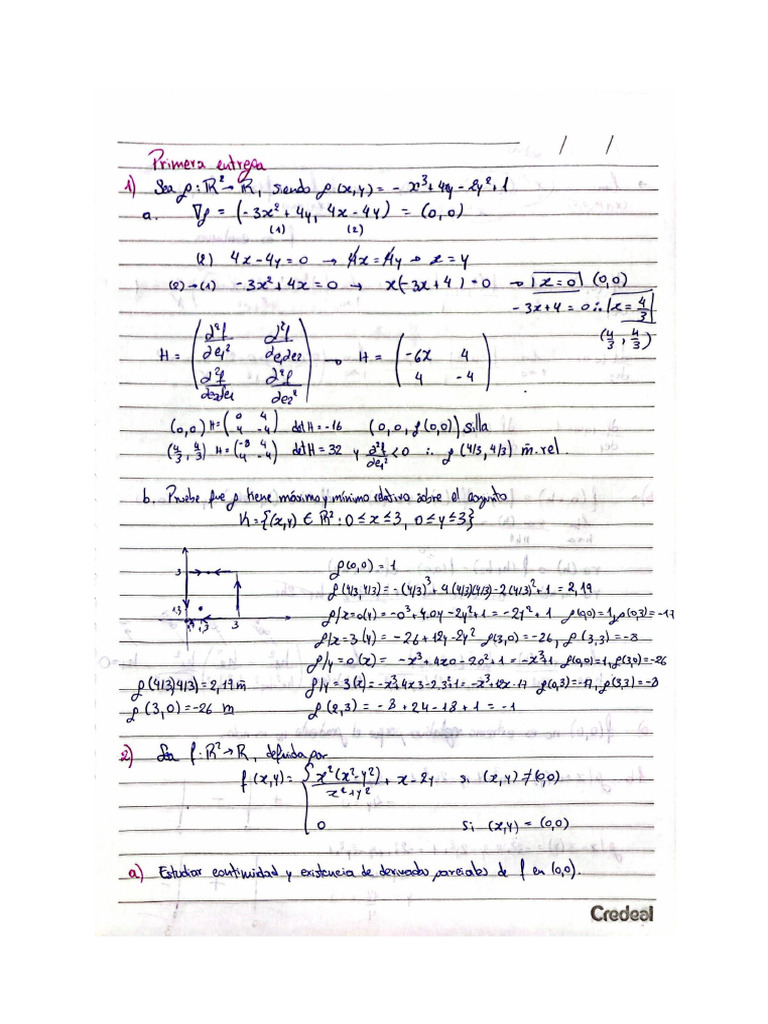 / /
Primera entrega
1) Sea f: R² → R, siendo f(x,y) = - x³ + 4xy - 2y² + 1
a. ∇f = (-3x² + 4y, 4x - 4y) = (0,0)
(1) (2)
(2) 4x - 4y = 0 → 4x = 4y → x = y
(2) → (1) -3x² + 4x = 0 → x(-3x + 4) = 0 → x = 0 (0,0)
-3x + 4 = 0 ∴ x = 4/3
(4/3, 4/3)
H = ( ∂²f/∂e₁² ∂²f/∂e₁∂e₂ ; ∂²f/∂e₂∂e₁ ∂²f/∂e₂² ) → H = ( -6x 4 ; 4 -4 )
(0,0) H = ( 0 4 ; 4 -4 ) det H = -16 (0,0, f(0,0)) silla
(4/3, 4/3) H = ( -8 4 ; 4 -4 ) det H = 32 y ∂²f/∂e₁² < 0 ∴ f(4/3, 4/3) m̄. rel.
b. Pruebe que f tiene máximo y mínimo relativo sobre el conjunto
K = {(x,y) ∈ R² : 0 ≤ x ≤ 3, 0 ≤ y ≤ 3}
f(0,0) = 1
3
f(4/3, 4/3) = -(4/3)³ + 4(4/3)(4/3) - 2(4/3)² + 1 = 2,19
1,3
f/x=0(y) = -0³ + 4.0y - 2y² + 1 = -2y² + 1 f(0,0) = 1, f(0,3) = -17
1,3 3
f/x=3(y) = -26 + 12y - 2y² f(3,0) = -26, f(3,3) = -8
f/y=0(x) = -x³ + 4x0 - 2.0² + 1 = -x³ + 1 f(0,0) = 1, f(3,0) = -26
f(4/3, 4/3) = 2,19 m̄ f/y=3(x) = -x³ + 4x3 - 2.3² + 1 = -x³ + 12x - 17 f(0,3) = -17, f(3,3) = -8
f(3,0) = -26 m f(2,3) = -8 + 24 - 18 + 1 = -1
2) Sea f: R² → R, definida por
f(x,y) = { x²(x² - y²)/(x² + y²) + x - 2y si (x,y) ≠ (0,0)
0 si (x,y) = (0,0)
a) Estudiar continuidad y existencia de derivadas parciales de f en (0,0).
Credeal